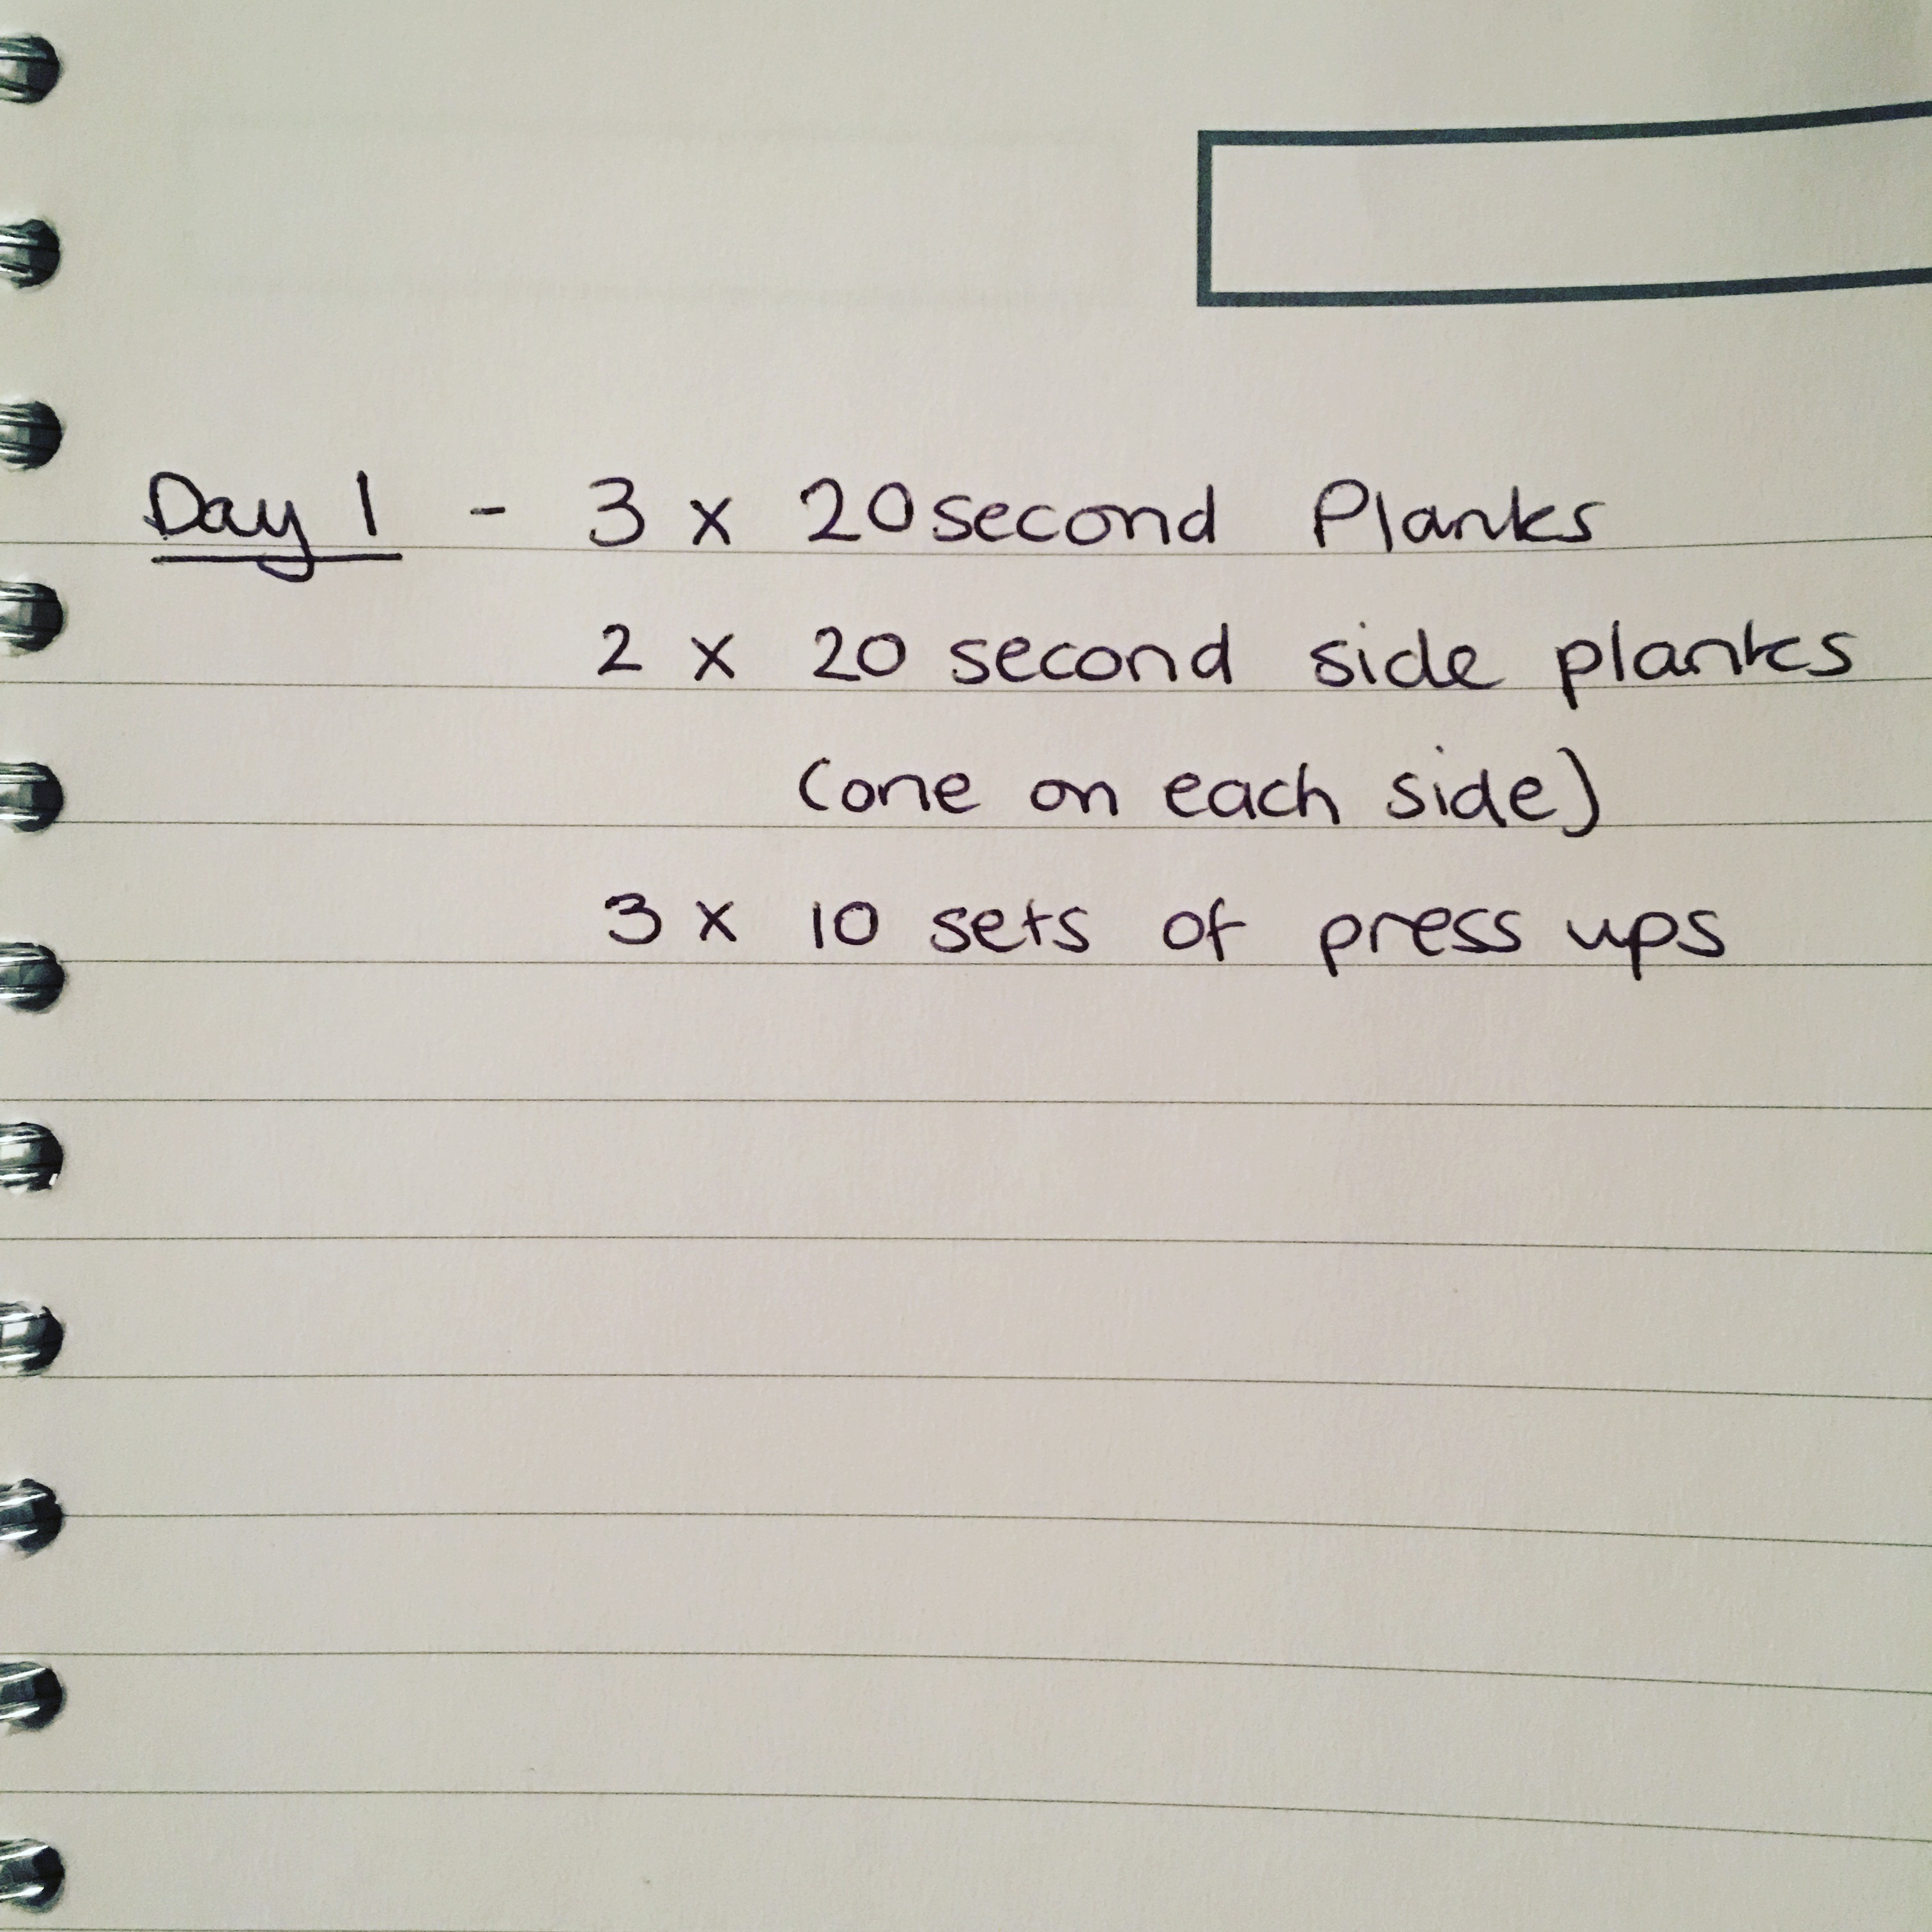 Day 1 - 3 x 20 second Planks
2 x 20 second side planks
(one on each side)
3 x 10 sets of press ups